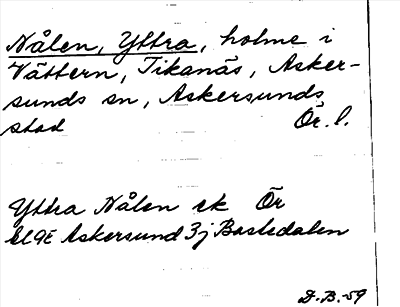 Nålen, Yttra, holme i
Vättern, Tikanäs, Asker-
sunds sn, Askersunds
stad Ör. l.
Yttra Nålen ek Ör
9E Askersund 3j Bastedalen
D.B. 59